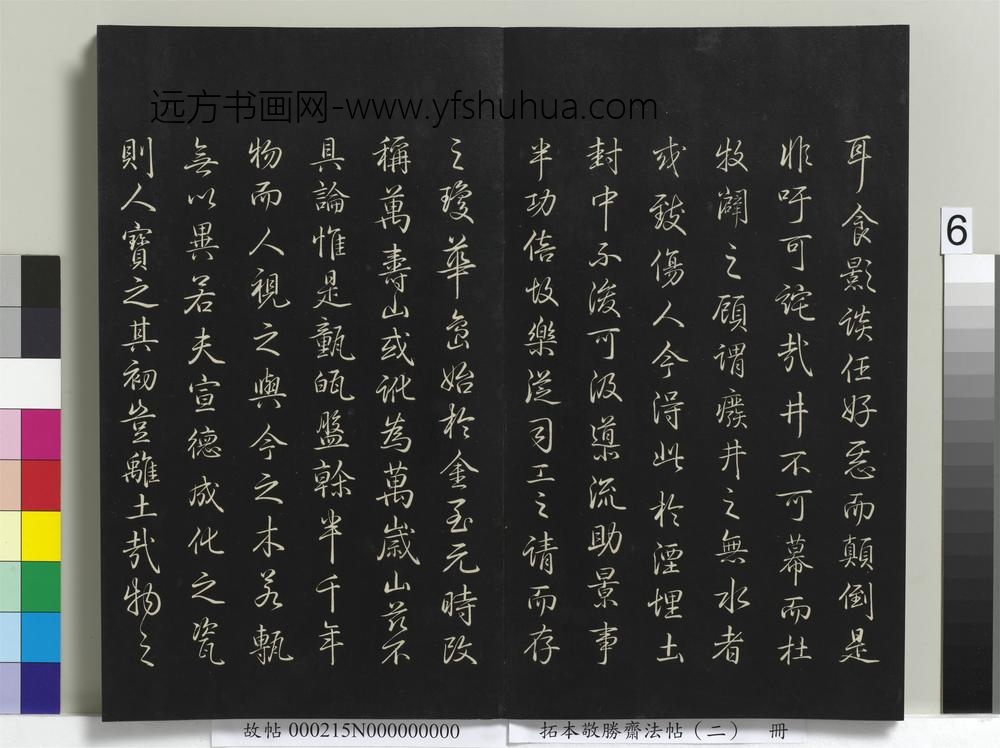 远方书画网-www.yfshuhua.com
耳食影談任好惡而顛倒是
非吁可詫哉井不可幕而杜
牧闢之顧謂癈井之無水者
或致傷人今得此於湮埋土
封中不浚可汲導流助景事
半功倍故樂從司工之請而存
之瓊華島始於金至元時改
稱萬壽山或訛為萬歲山茲不
具論惟是甎瓴盤幹半千年
物而人視之與今之木若甎
無以異若夫宣德成化之瓷
則人寶之其初豈離土哉物之
6
故帖 000215N000000000
拓本敬勝齋法帖（二） 冊